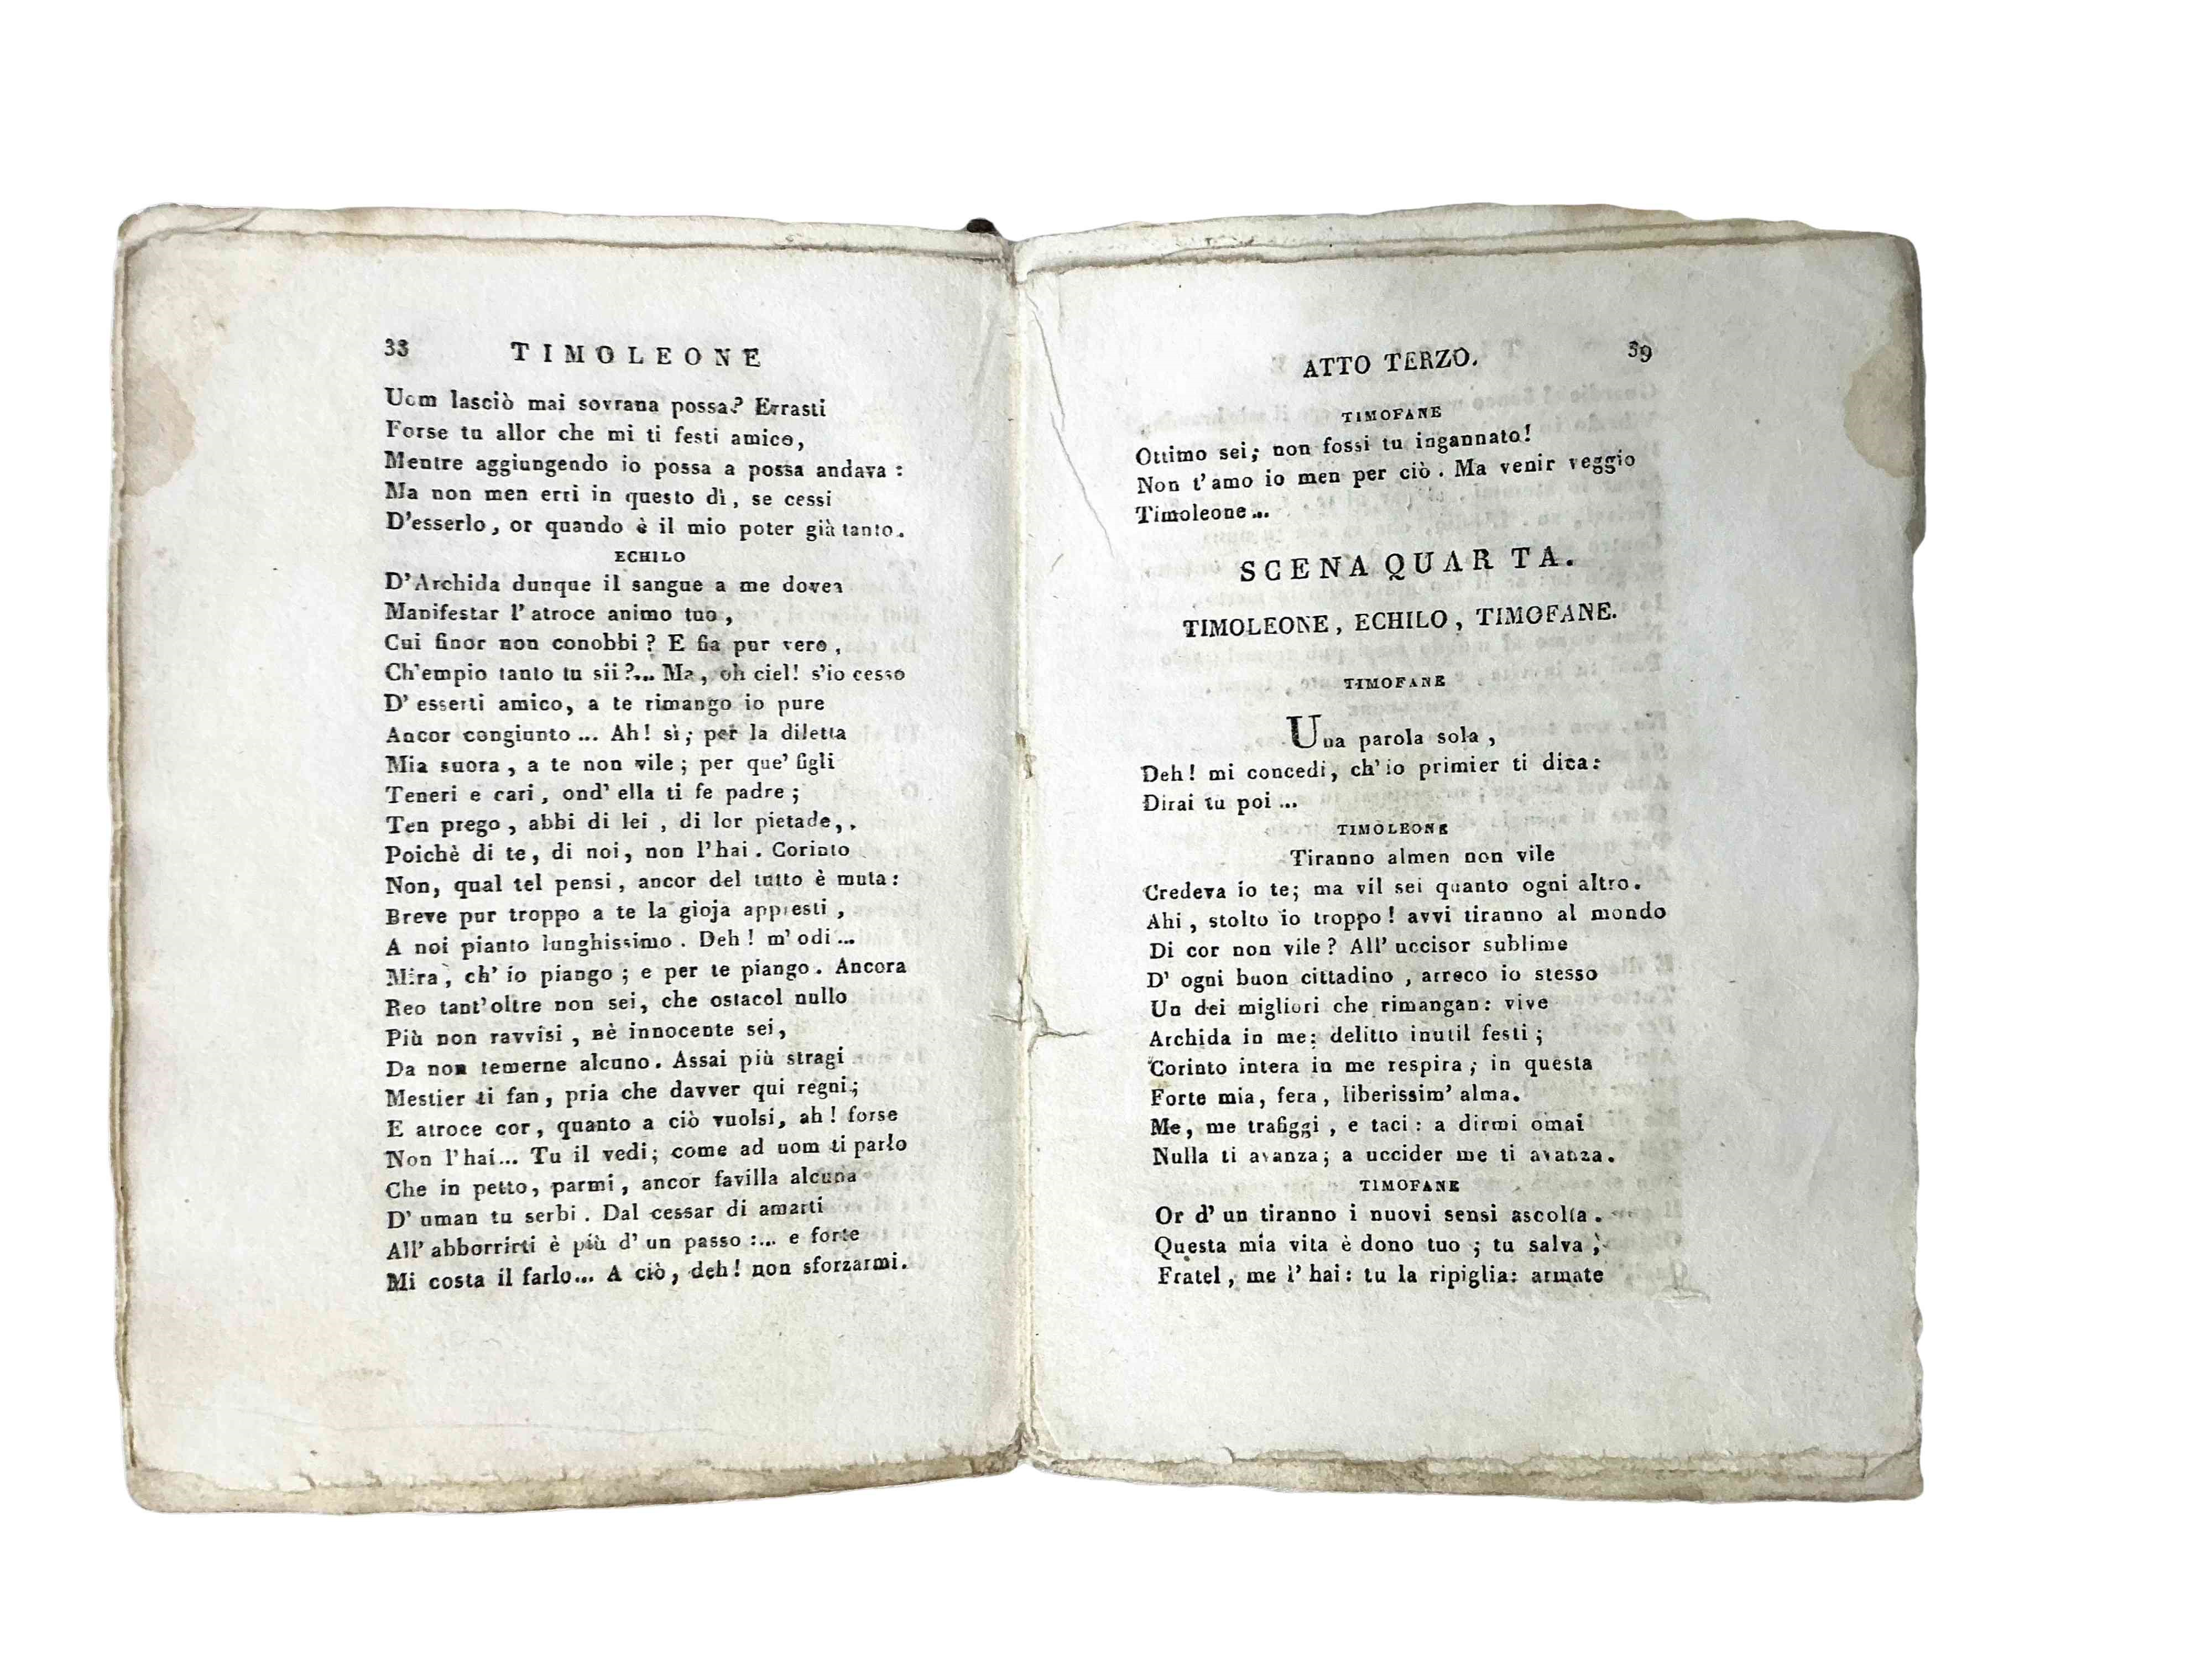 38 TIMOLEONE
Uom lasciò mai sovrana possa? Errasti
Forse tu allor che mi ti festi amico,
Mentre aggiungendo io possa a possa andava :
Ma non men erri in questo dì, se cessi
D'esserlo, or quando è il mio poter già tanto.
ECHILO
D'Archida dunque il sangue a me dovea
Manifestar l'atroce animo tuo,
Cui finor non conobbi? E fia pur vero,
Ch'empio tanto tu sii?... Ma, oh ciel! s'io cesso
D'esserti amico, a te rimango io pure
Ancor congiunto... Ah! sì; per la diletta
Mia suora, a te non vile; per que' figli
Teneri e cari, ond' ella ti fe padre;
Ten prego, abbi di lei, di lor pietade,.
Poichè di te, di noi, non l'hai. Corinto
Non, qual tel pensi, ancor del tutto è muta:
Breve pur troppo a te la gioja appresti,
A noi pianto lunghissimo. Deh! m'odi...
Mira, ch'io piango; e per te piango. Ancora
Reo tant'oltre non sei, che ostacol nullo
Più non ravvisi, nè innocente sei,
Da non temerne alcuno. Assai più stragi
Mestier ti fan, pria che davver qui regni;
E atroce cor, quanto a ciò vuolsi, ah! forse
Non l'hai... Tu il vedi; come ad uom ti parlo
Che in petto, parmi, ancor favilla alcuna
D'uman tu serbi. Dal cessar di amarti
All'abborrirti è più d'un passo:... e forte
Mi costa il farlo... A ciò, deh! non sforzarmi.
ATTO TERZO. 39
TIMOFANE
Ottimo sei; non fossi tu ingannato!
Non t'amo io men per ciò. Ma venir veggio
Timoleone...
SCENA QUARTA.
TIMOLEONE, ECHILO, TIMOFANE.
TIMOFANE
Una parola sola,
Deh! mi concedi, ch'io primier ti dica:
Dirai tu poi...
TIMOLEONE
Tiranno almen non vile
Credeva io te; ma vil sei quanto ogni altro.
Ahi, stolto io troppo! avvi tiranno al mondo
Di cor non vile? All'uccisor sublime
D'ogni buon cittadino, arreco io stesso
Un dei migliori che rimangan: vive
Archida in me: delitto inutil festi;
Corinto intera in me respira; in questa
Forte mia, fera, liberissim' alma.
Me, me trafiggi, e taci: a dirmi omai
Nulla ti avanza; a uccider me ti avanza.
TIMOFANE
Or d'un tiranno i nuovi sensi ascolta.
Questa mia vita è dono tuo; tu salva,
Fratel, me l'hai: tu la ripiglia: armate